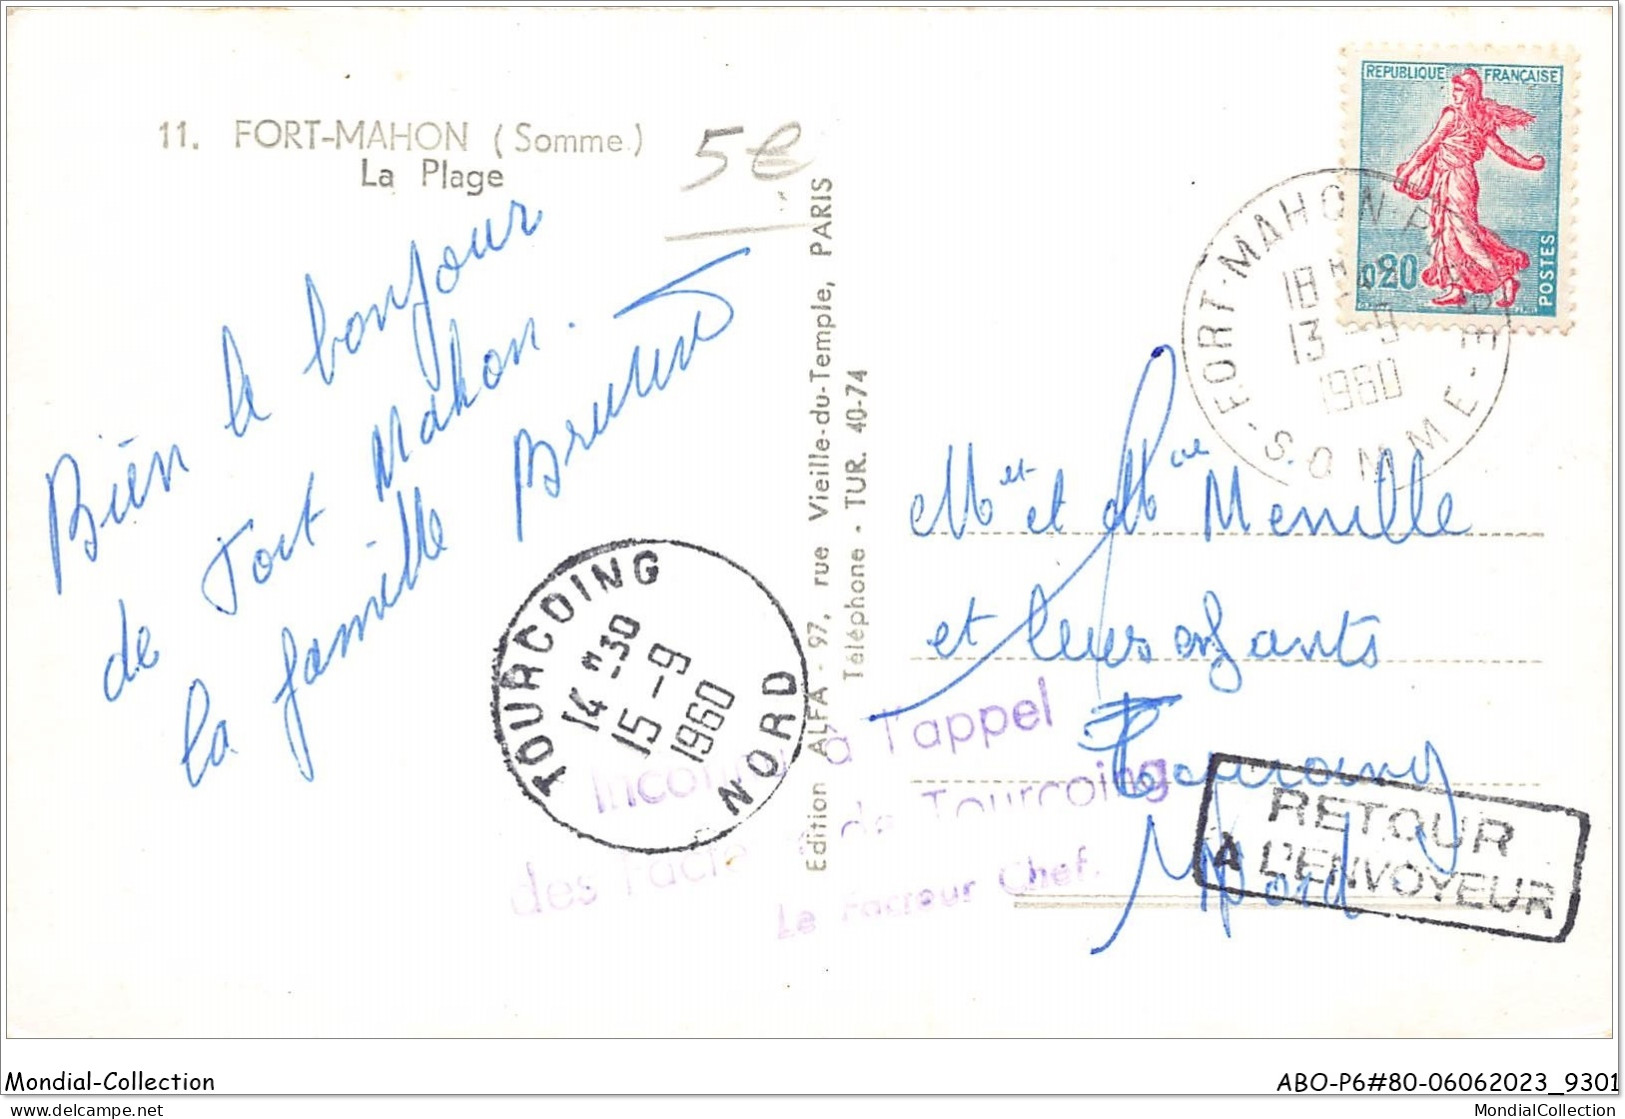 11. FORT-MAHON (Somme)
La Plage
5€
Bien le bonjour
de Fort Mahon.
la famille
Edition ALFA - 97, rue Vieille-du-Temple, PARIS
Téléphone - TUR. 40-74
REPUBLIQUE FRANÇAISE
0,20
POSTES
FORT-MAHON-PLAGE
18H
13 -9
1960
SOMME
Mr et Mme Menille
et leurs enfants
Tourcoing
Nord
TOURCOING
14H30
15 -9
1960
NORD
Inconnu à l'appel
des Facteurs de Tourcoing
Le Facteur Chef.
RETOUR
A L'ENVOYEUR
Mondial-Collection
ABO-P6#80-06062023_9301
delcampe.net
MondialCollection